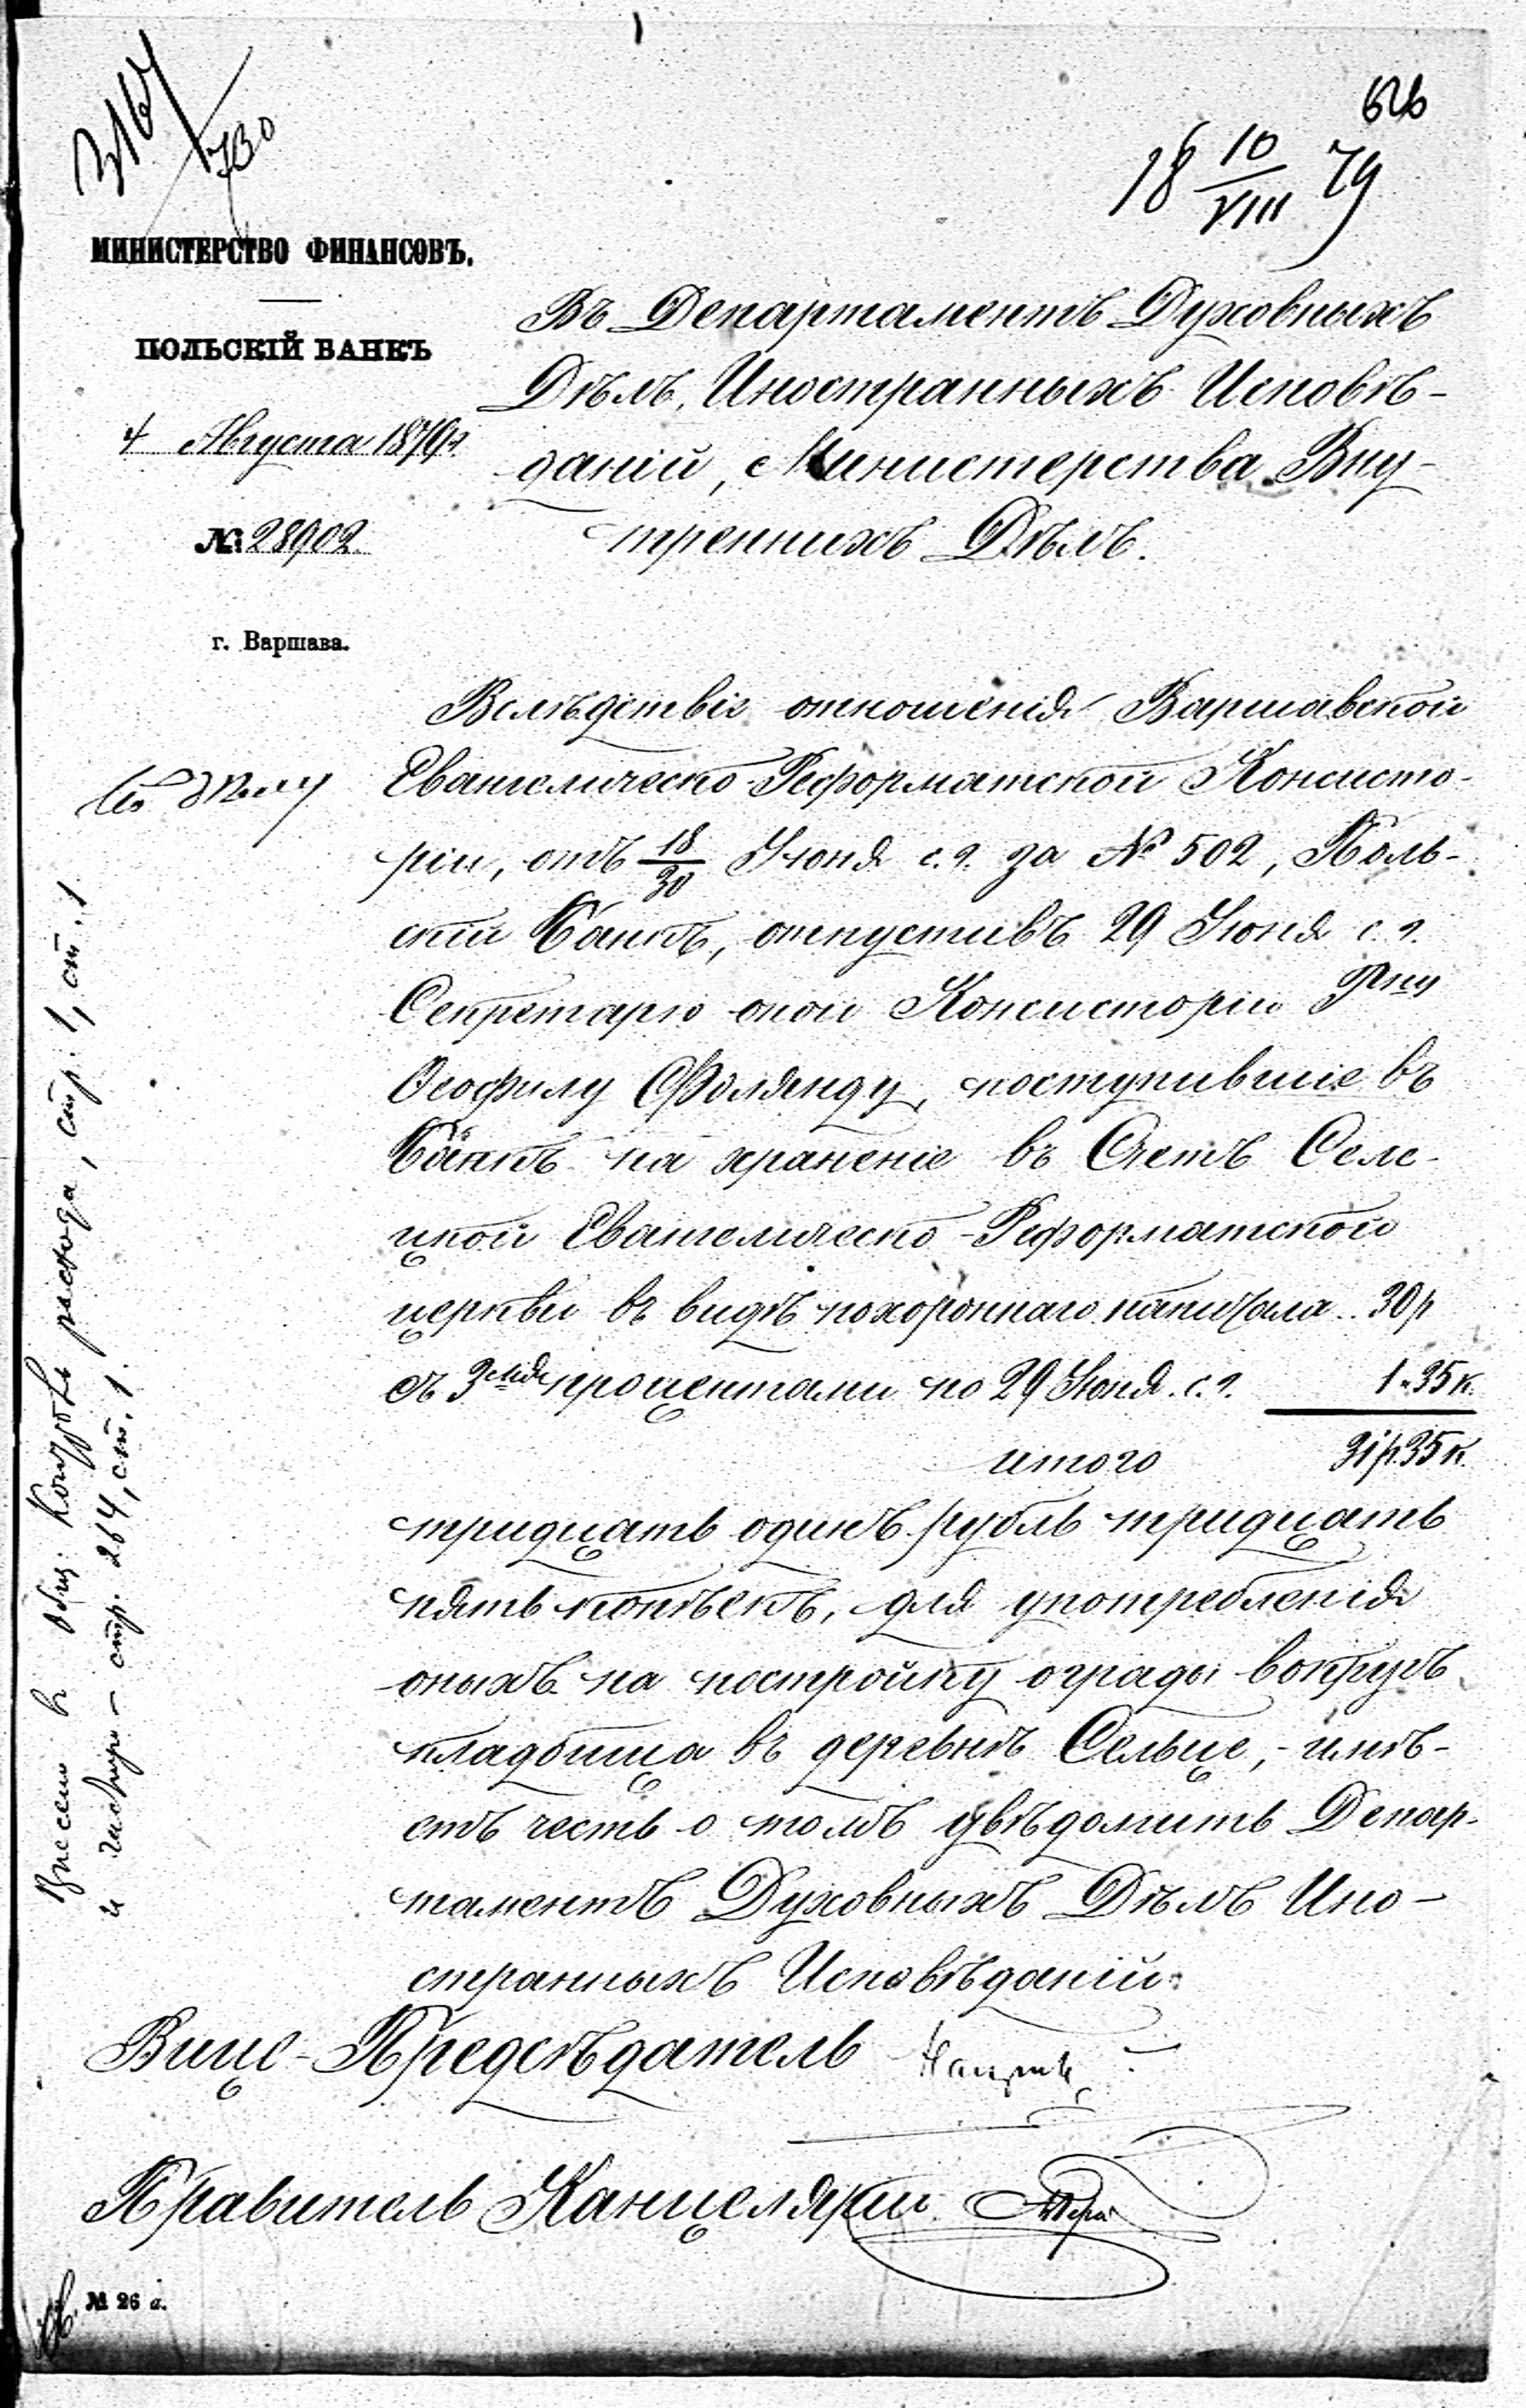 3164/730
626
18 10/VIII 79
МИНИСТЕРСТВО ФИНАНСОВЪ.
ПОЛЬСКІЙ БАНКЪ
4 Августа 1879 г.
№ 28902
г. Варшава.
Въ Департаментъ Духовныхъ
Дѣлъ Иностранныхъ Исповѣ-
даній, Министерства Вну-
треннихъ Дѣлъ.
Вслѣдствіе отношенія Варшавской
Евангелическо-Реформатской Консисто-
ріи, отъ 18/30 Іюня с. г. за № 502, Поль-
скій Банкъ, отпустивъ 29 Іюня с. г.
Секретарю оной Консисторіи Г-ну
Ѳеофилу Фолянду, поступившіе въ
Банкъ на храненіе въ Счетъ Селе-
цкой Евангелическо-Реформатской
церкви въ видѣ похороннаго капитала .. 30 р
съ 3мя процентами по 29 Іюня с. г. 1 " 35 к.
итого 31 р 35 к.
тридцать одинъ рубль тридцать
пять копѣекъ, для употребленія
оныхъ на постройку ограды вокругъ
кладбища въ деревнѣ Сельце, - имѣ-
етъ честь о томъ увѣдомить Депар-
таментъ Духовныхъ Дѣлъ Ино-
странныхъ Исповѣданій.
Вице-Предсѣдатель
Правитель Канцеляріи
Къ дѣлу
Внесено въ общ: расхода, стр. 1, ст. 1
и стр. 264, ст. 1.
№ 26 а.